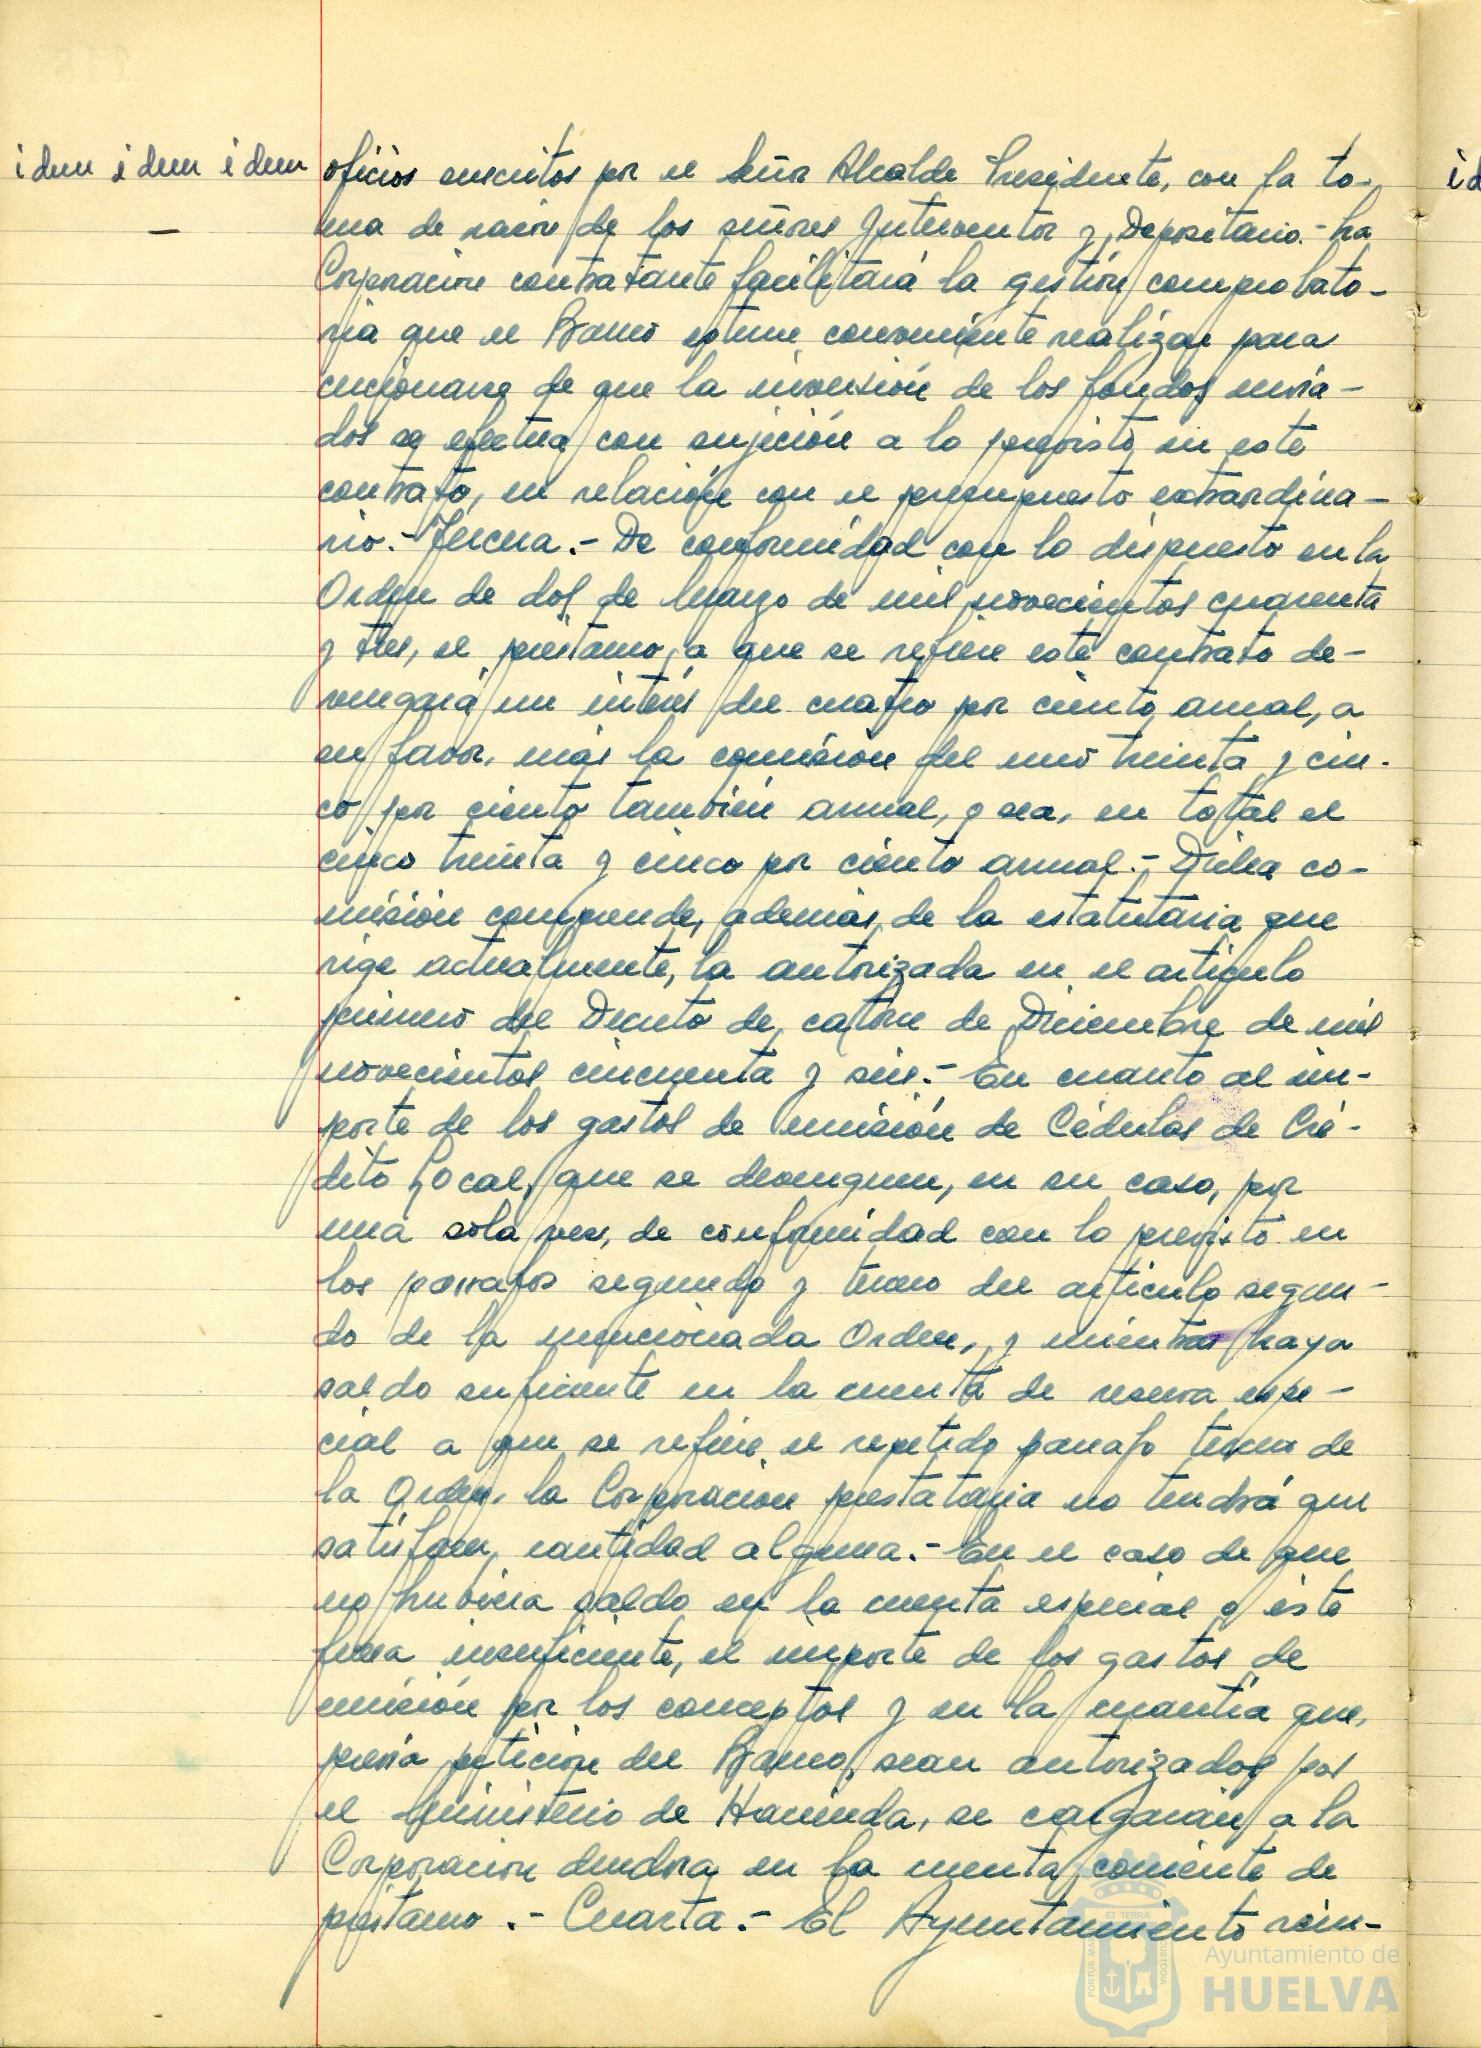 idem idem idem
oficios suscritos por el Señor Alcalde Presidente, con la to-
ma de razón de los señores Interventor y Depositario.- La
Corporación contratante facilitará la gestión comprobato-
ria que el Banco estime conveniente realizar para
cerciorarse de que la inversión de los fondos envia-
dos se efectua con sujeción a lo previsto en este
contrato, en relación con el presupuesto extraordina-
rio.- Tercera.- De conformidad con lo dispuesto en la
Orden de dos de Marzo de mil novecientos cuarenta
y tres, el préstamo, a que se refiere este contrato de-
vengará un interés del cuatro por ciento anual, a
su favor, más la comisión del uno treinta y cin-
co por ciento también anual, o sea, en total el
cinco treinta y cinco por ciento anual.- Dicha co-
misión comprende, además, de la estatutaria que
rige actualmente, la autorizada en el artículo
primero del Decreto de catorce de Diciembre de mil
novecientos cincuenta y seis.- En cuanto al im-
porte de los gastos de emisión de Cédulas de Cré-
dito Local, que se devenguen, en su caso, por
una sola vez, de conformidad con lo previsto en
los parrafos segundo y tercero del artículo segun-
do de la mencionada Orden, y mientras haya
saldo suficiente en la cuenta de reserva espe-
cial a que se refiere el repetido parrafo tercero de
la Orden, la Corporación prestataria no tendrá que
satisfacer, cantidad alguna.- En el caso de que
no hubiera saldo en la cuenta especial o éste
fuera insuficiente, el importe de los gastos de
emisión por los conceptos y en la cuantía que,
previa petición del Banco, sean autorizados por
el Ministerio de Hacienda, se cargarán a la
Corporación deudora en la cuenta corriente de
préstamo.- Cuarta.- El Ayuntamiento rein-
id
PORTUS MARIS ET TERRAE CUSTODIA
Ayuntamiento de
HUELVA